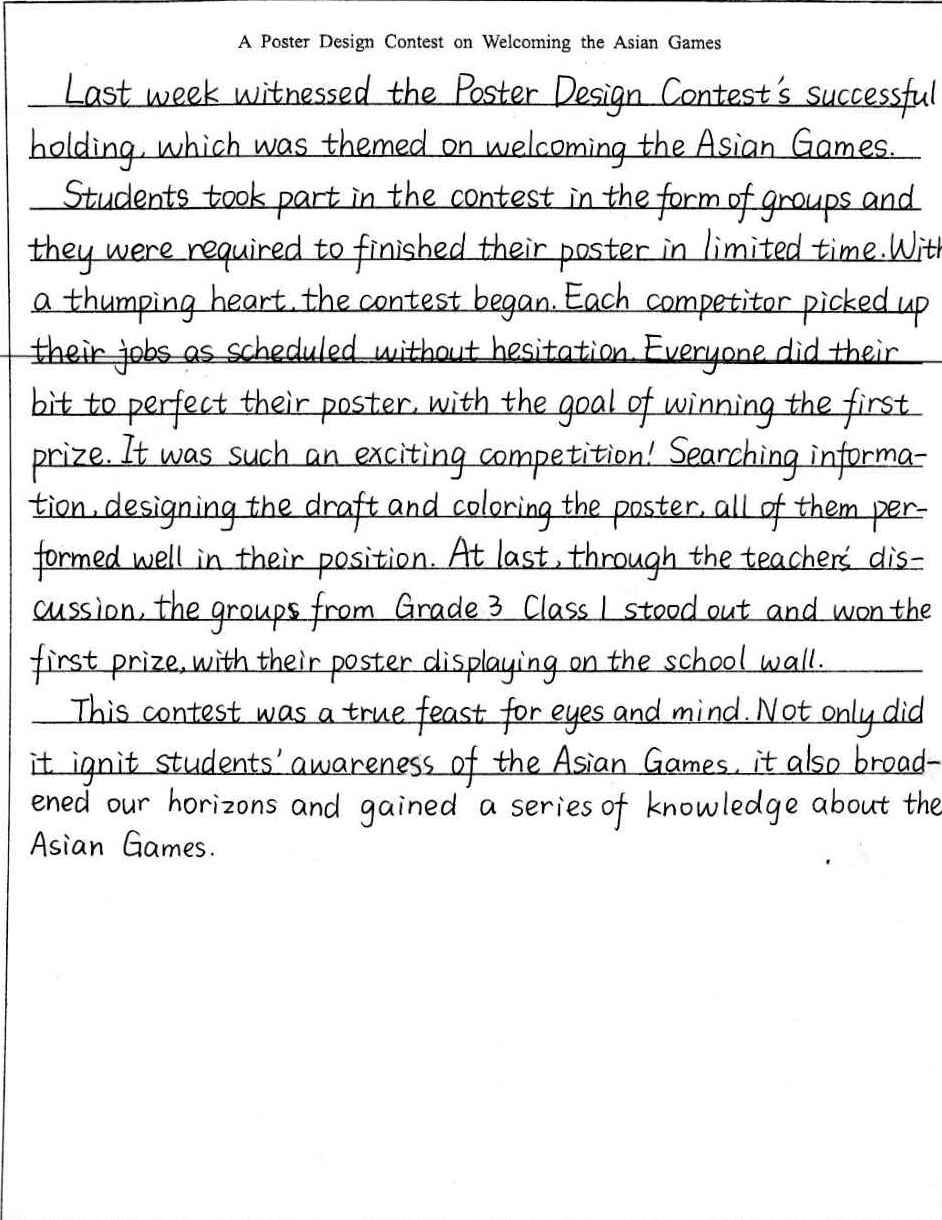 A Poster Design Contest on Welcoming the Asian Games
Last week witnessed the Poster Design Contest's successful
holding, which was themed on welcoming the Asian Games.
Students took part in the contest in the form of groups and
they were required to finished their poster in limited time. With
a thumping heart, the contest began. Each competitor picked up
their jobs as scheduled without hesitation. Everyone did their
bit to perfect their poster, with the goal of winning the first
prize. It was such an exciting competition! Searching informa-
tion, designing the draft and coloring the poster, all of them per-
formed well in their position. At last, through the teachers' dis-
cussion, the groups from Grade 3 Class 1 stood out and won the
first prize, with their poster displaying on the school wall.
This contest was a true feast for eyes and mind. Not only did
it ignit students' awareness of the Asian Games, it also broad-
ened our horizons and gained a series of knowledge about the
Asian Games.